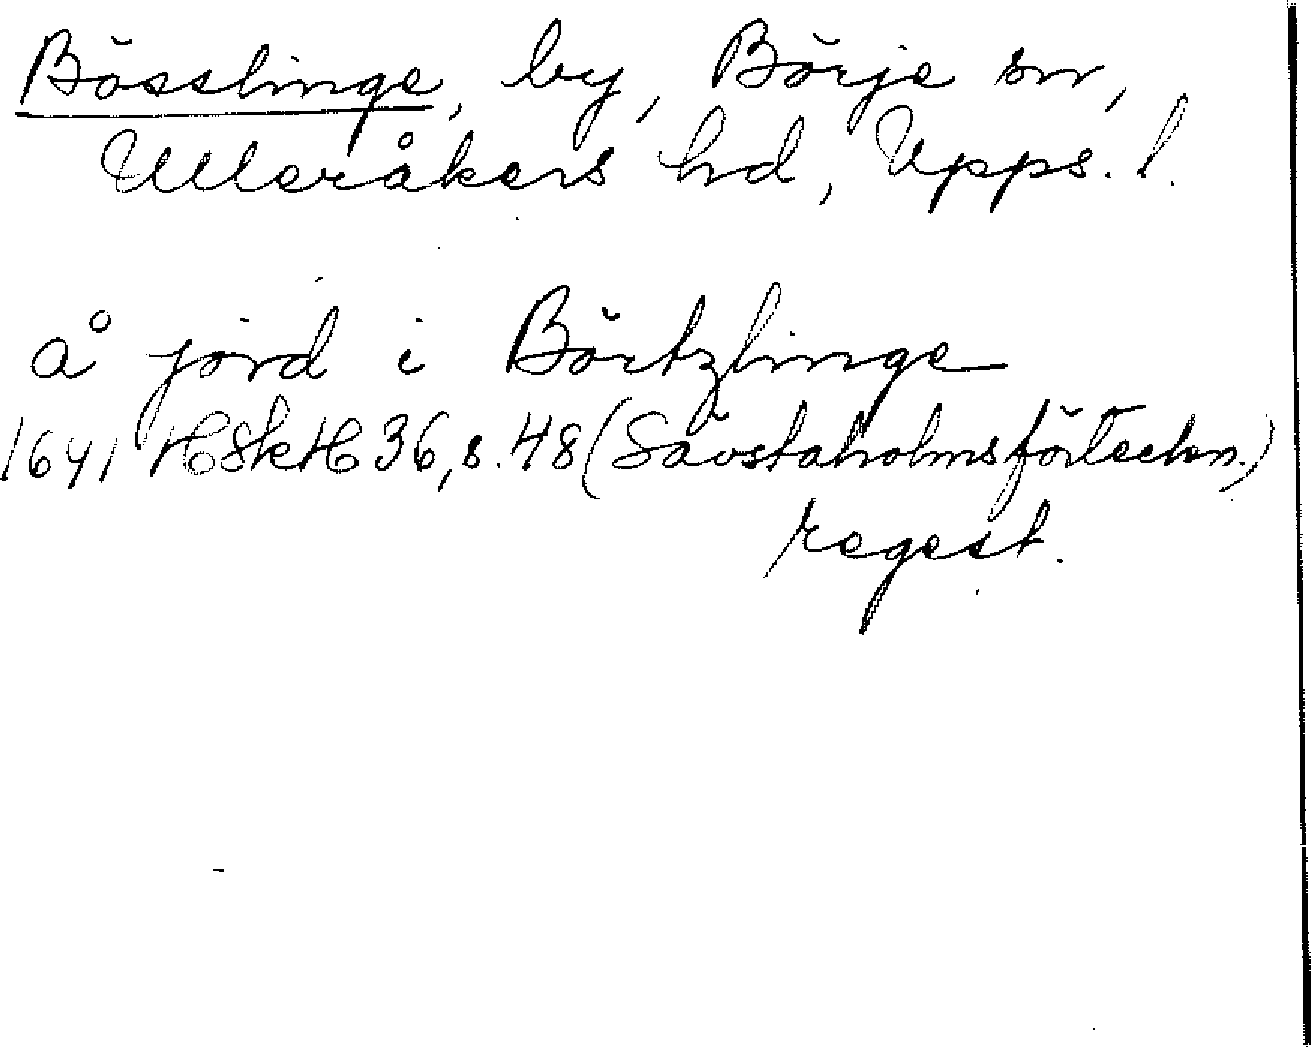 Bösslinge, by, Börje sn,
Ulleråkers hd, Upps. l.
å jord i Börtzlinge
1641 HSkH 36, s. 48 (Sävstaholmsförteckn.)
regest.